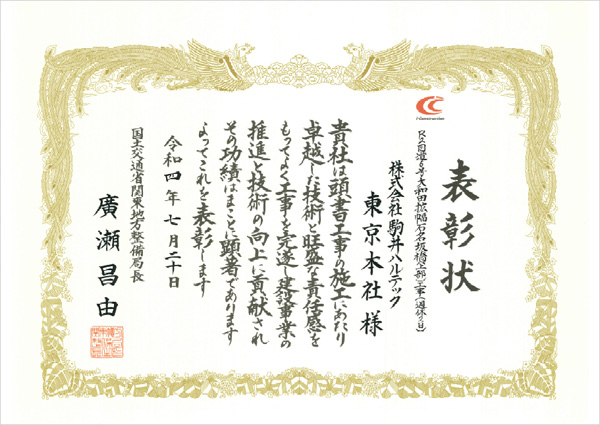 表彰状
i-Construction
R2国道6号大和田拡幅石名坂橋上部工事(週休2日)
株式会社 駒井ハルテック
東京本社 様
貴社は頭書工事の施工にあたり
卓越した技術と旺盛な責任感を
もってよく工事を完遂し建設事業の
推進と技術の向上に貢献され
その功績はまことに顕著であります
よってこれを表彰します
令和四年七月二十日
国土交通省関東地方整備局長
廣瀬昌由